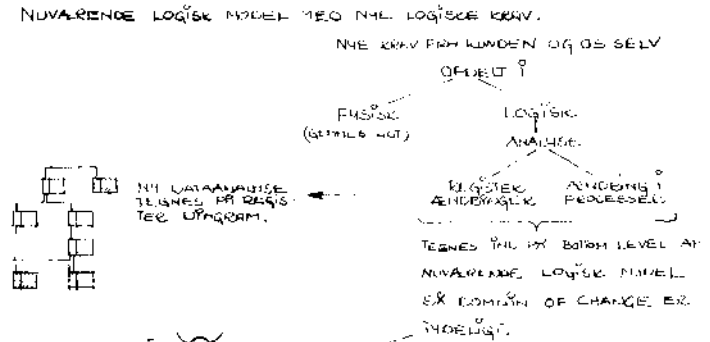 NUVÆRENDE LOGISK MODEL MED NYE LOGISKE KRAV.
NYE KRAV FRA KUNDEN OG OS SELV
OPDELT I
FYSISK
LOGISK
(GEMMES
ANALYSE
REGISTER
ÆNDRING I
ÆNDRINGER
PROCESSER
NY DATAANALYSE
TEGNES PÅ REGIS-
TER DIAGRAM.
TEGNES IND PÅ BOTTOM LEVEL AF
NUVÆRENDE LOGISK MODEL
DOMAIN OF CHANGE ER
TYDELIGE.